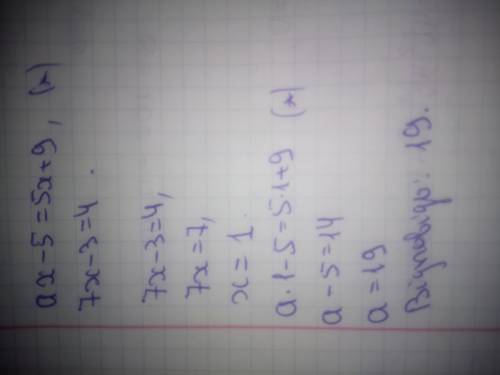 ax-5=5x+9, (*)
7x-3=4.
7x-3=4,
7x=7,
x=1.
a·1-5=5·1+9 (*)
a-5=14
a=19
Відповідь: 19.